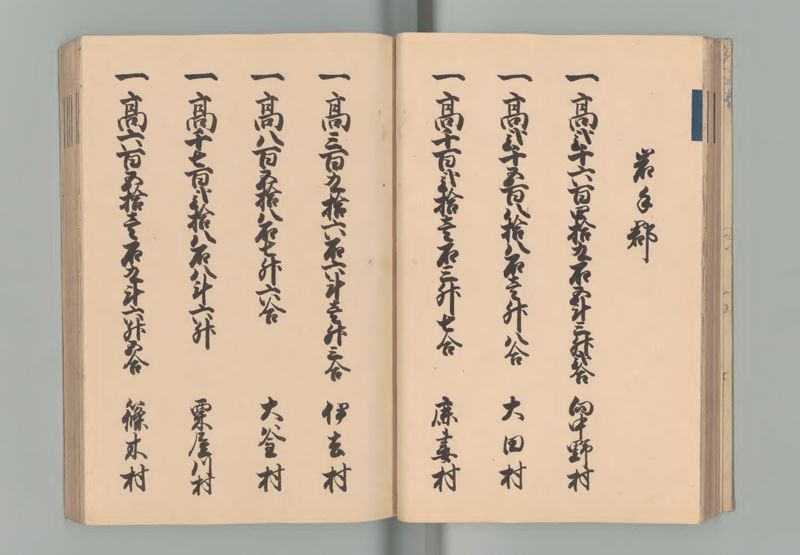 岩手郡
一高弐千六百四拾九石五斗三升弐合 向中野村
一高弐千五百八拾八石壱升八合 大田村
一高千百弐拾壱石三升七合 鹿妻村
一高三百九拾六石六斗壱升三合 伊去村
一高八百五拾八石七升六合 大釜村
一高千七百弐拾八石八斗六升 栗屋川村
一高六百五拾壱石九斗六升五合 篠木村